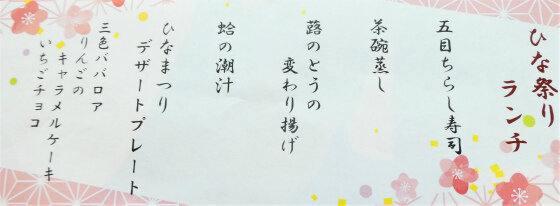 ひな祭り
ランチ
五目ちらし寿司
茶碗蒸し
蕗のとうの
変わり揚げ
蛤の潮汁
ひなまつり
デザートプレート
三色ババロア
りんごの
キャラメルケーキ
いちごチョコ